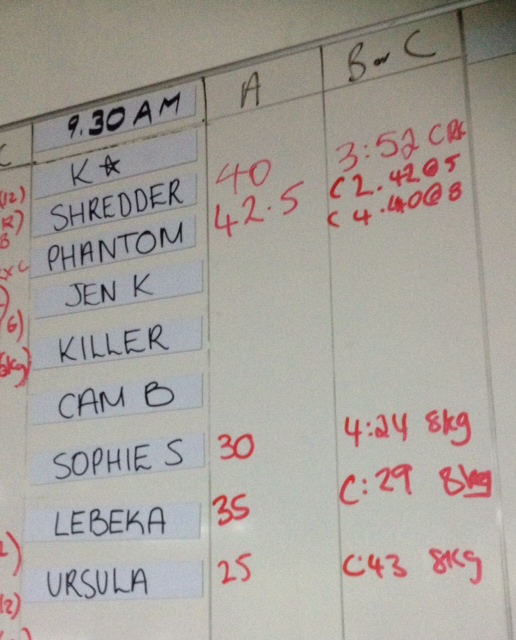 9.30 AM A B or C
K☆ 40 3:52 CRX
SHREDDER 42.5 C 2.42@5
PHANTOM C 4.40@8
JEN K
KILLER
CAM B
SOPHIE S 30 4:24 8kg
LEBEKA 35 C:29 8kg
URSULA 25 C:43 8kg